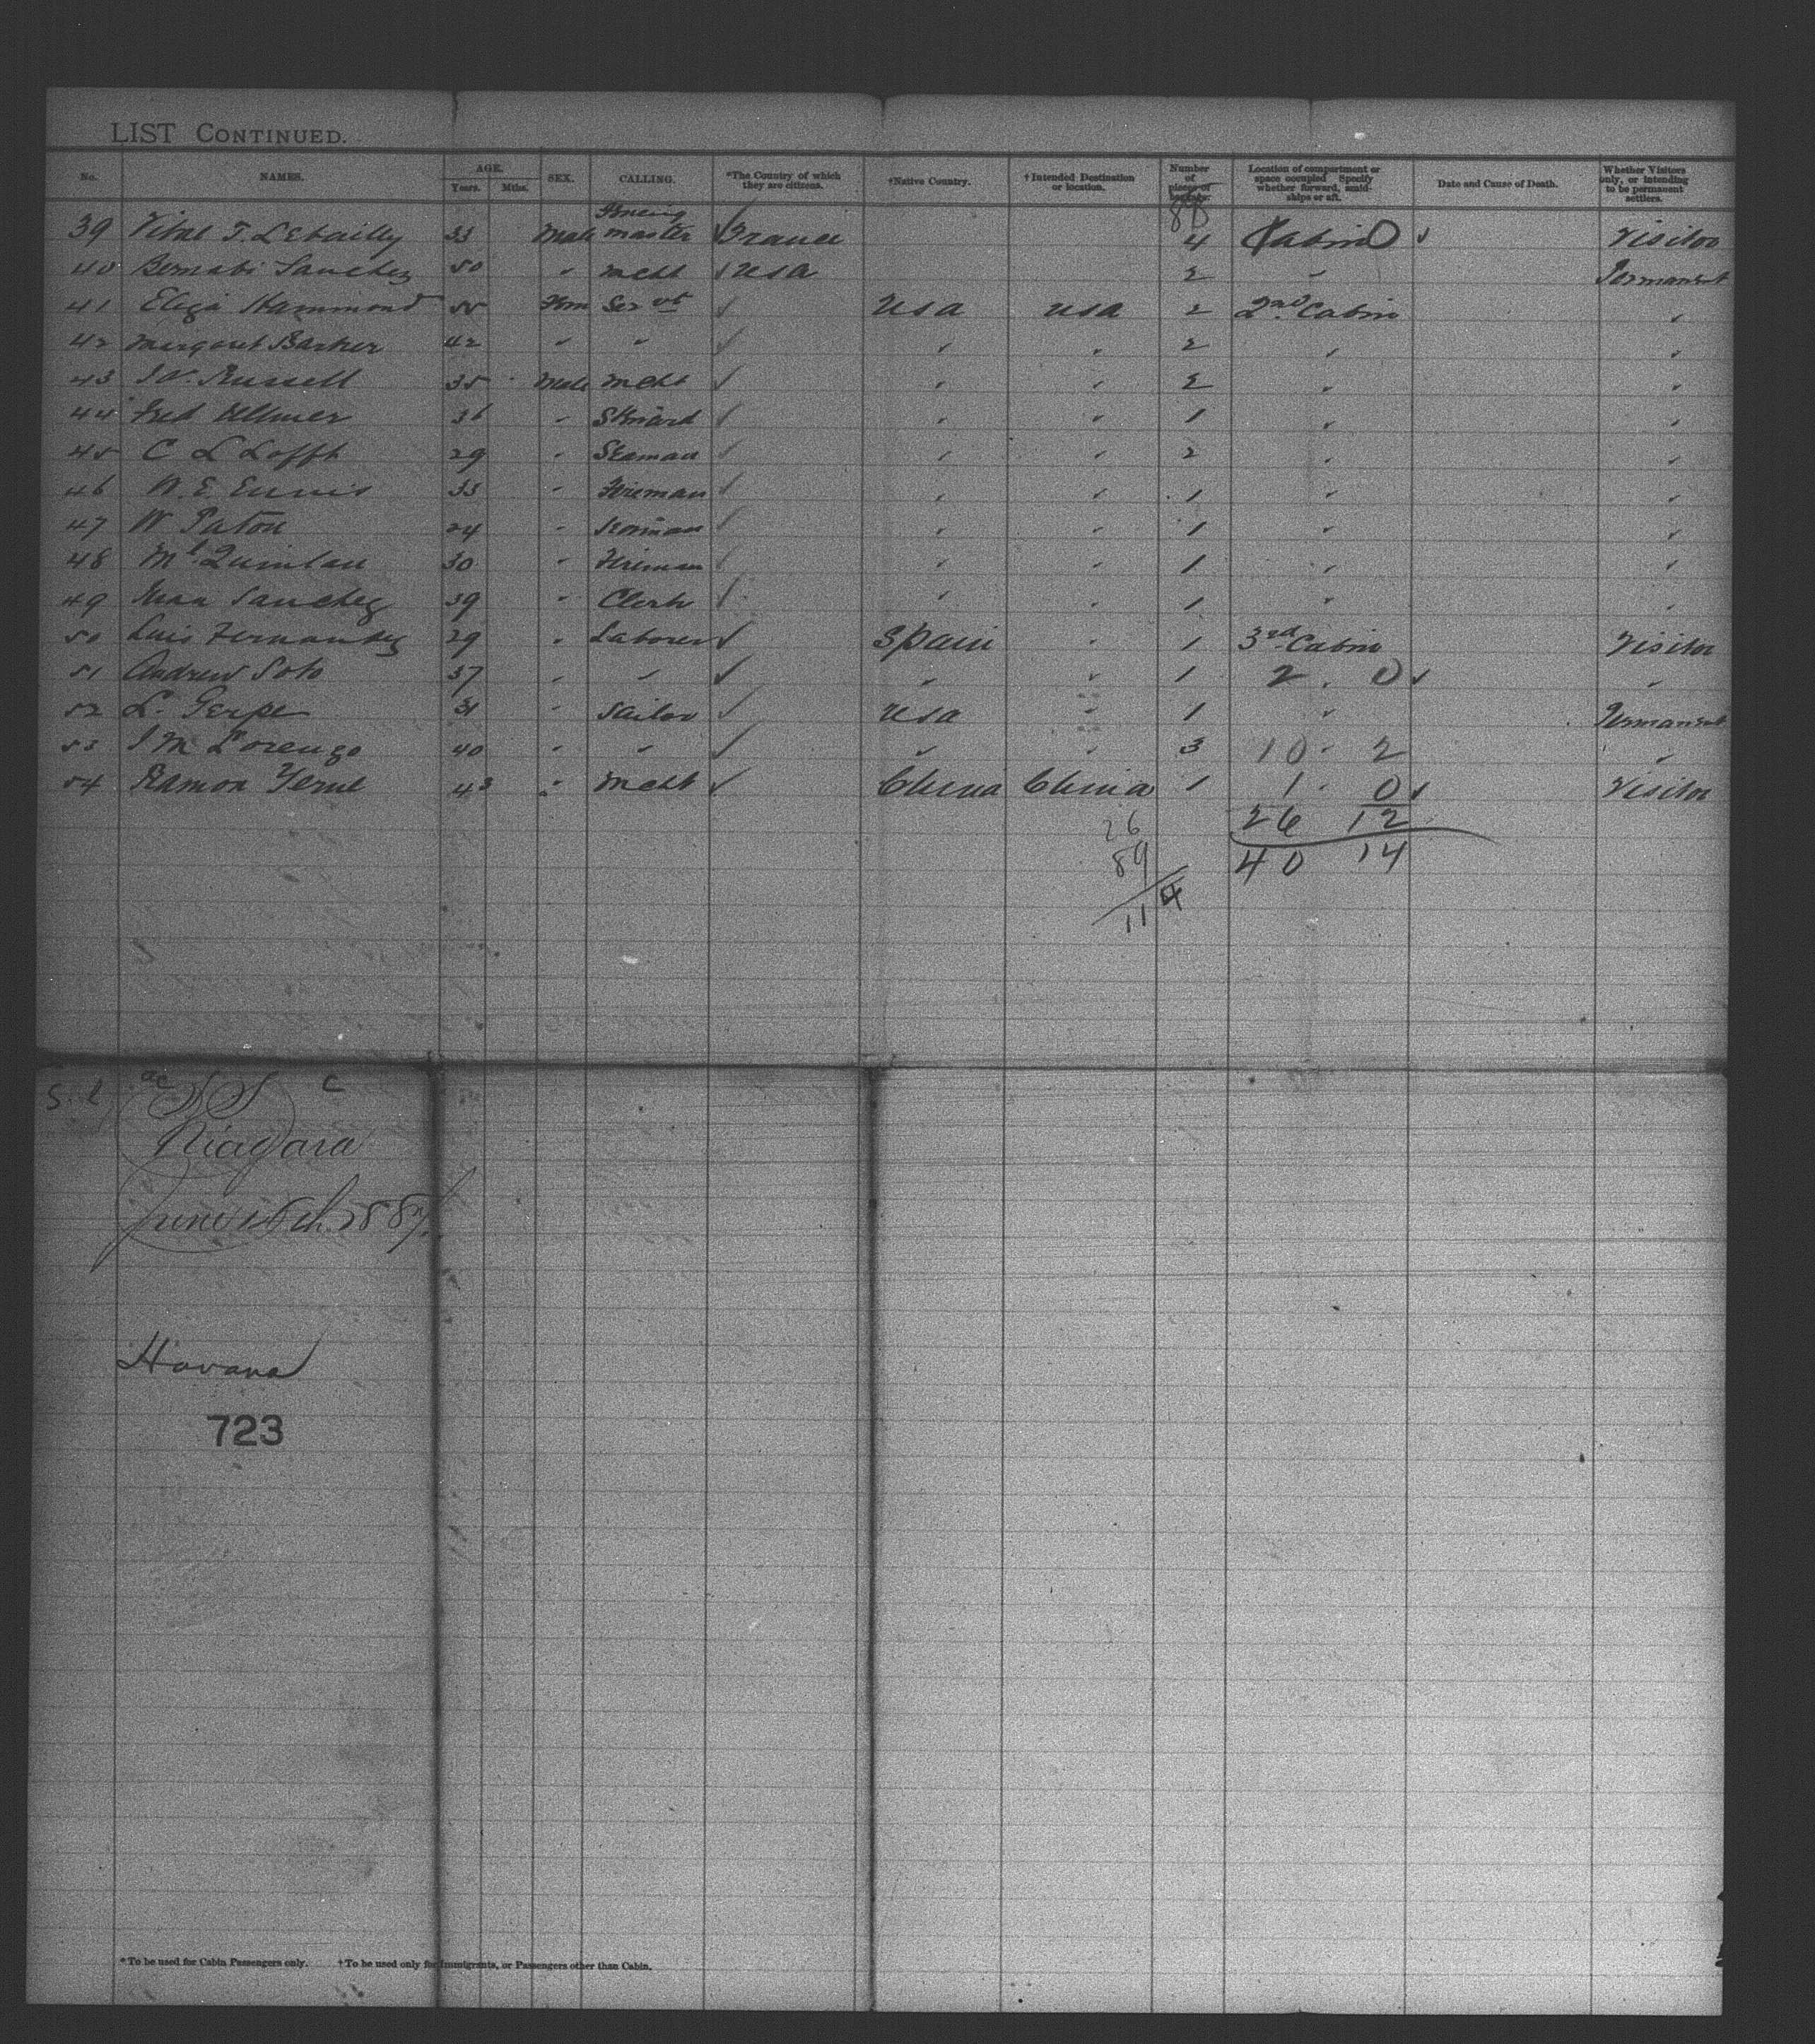 LIST CONTINUED.
No. NAMES. AGE. Years. Mths. SEX. CALLING. *The Country of which they are citizens. †Native Country. †Intended Destination or location. Number of pieces of baggage. Location of compartment or space occupied Specify whether forward, amidships or aft. Date and Cause of Death. Whether Visitors only, or intending to be permanent settlers.
88
39 T. Lebailly 33 Male Fencing master ✓ France 4 Cabin 0 ✓ Visitor
40 Bernabi Sanchez 50 " Mcht ✓ USA 2 " Permanent
41 Eliza Hammond 55 Fem Servt ✓ USA USA 2 2nd Cabin "
42 Margaret Barker 42 " " ✓ " " 2 " "
43 Russell 35 Male Mcht ✓ " " 2 " "
44 Fred Ullmer 36 " Steward ✓ " " 1 " "
45 C L Lofft 29 " Seaman ✓ " " 2 " "
46 Ennis 33 " Fireman ✓ " " 1 " "
47 W Paton 24 " ✓ " " 1 " "
48 Ml Quinlan 30 " Fireman ✓ " " 1 " "
49 Juan Sanchez 39 " Clerk ✓ " " 1 " "
50 Luis Fernandez 29 " Laborer ✓ Spain " 1 3rd Cabin Visitor
51 Andrew Soto 37 " " ✓ " " 1 2 . 0 ✓ "
52 L. Gerpe 31 " Sailor ✓ USA " 1 " Permanent
53 J M Lorenzo 40 " " ✓ " " 3 10 . 2 "
54 Ramon 43 " Mcht ✓ China China 1 1 . 0 ✓ Visitor
26 26 12
89 40 14
114
S. L
C
SS
Niagara
June 16th. 1887.
Havana
723
*To be used for Cabin Passengers only. †To be used only for Immigrants, or Passengers other than Cabin.